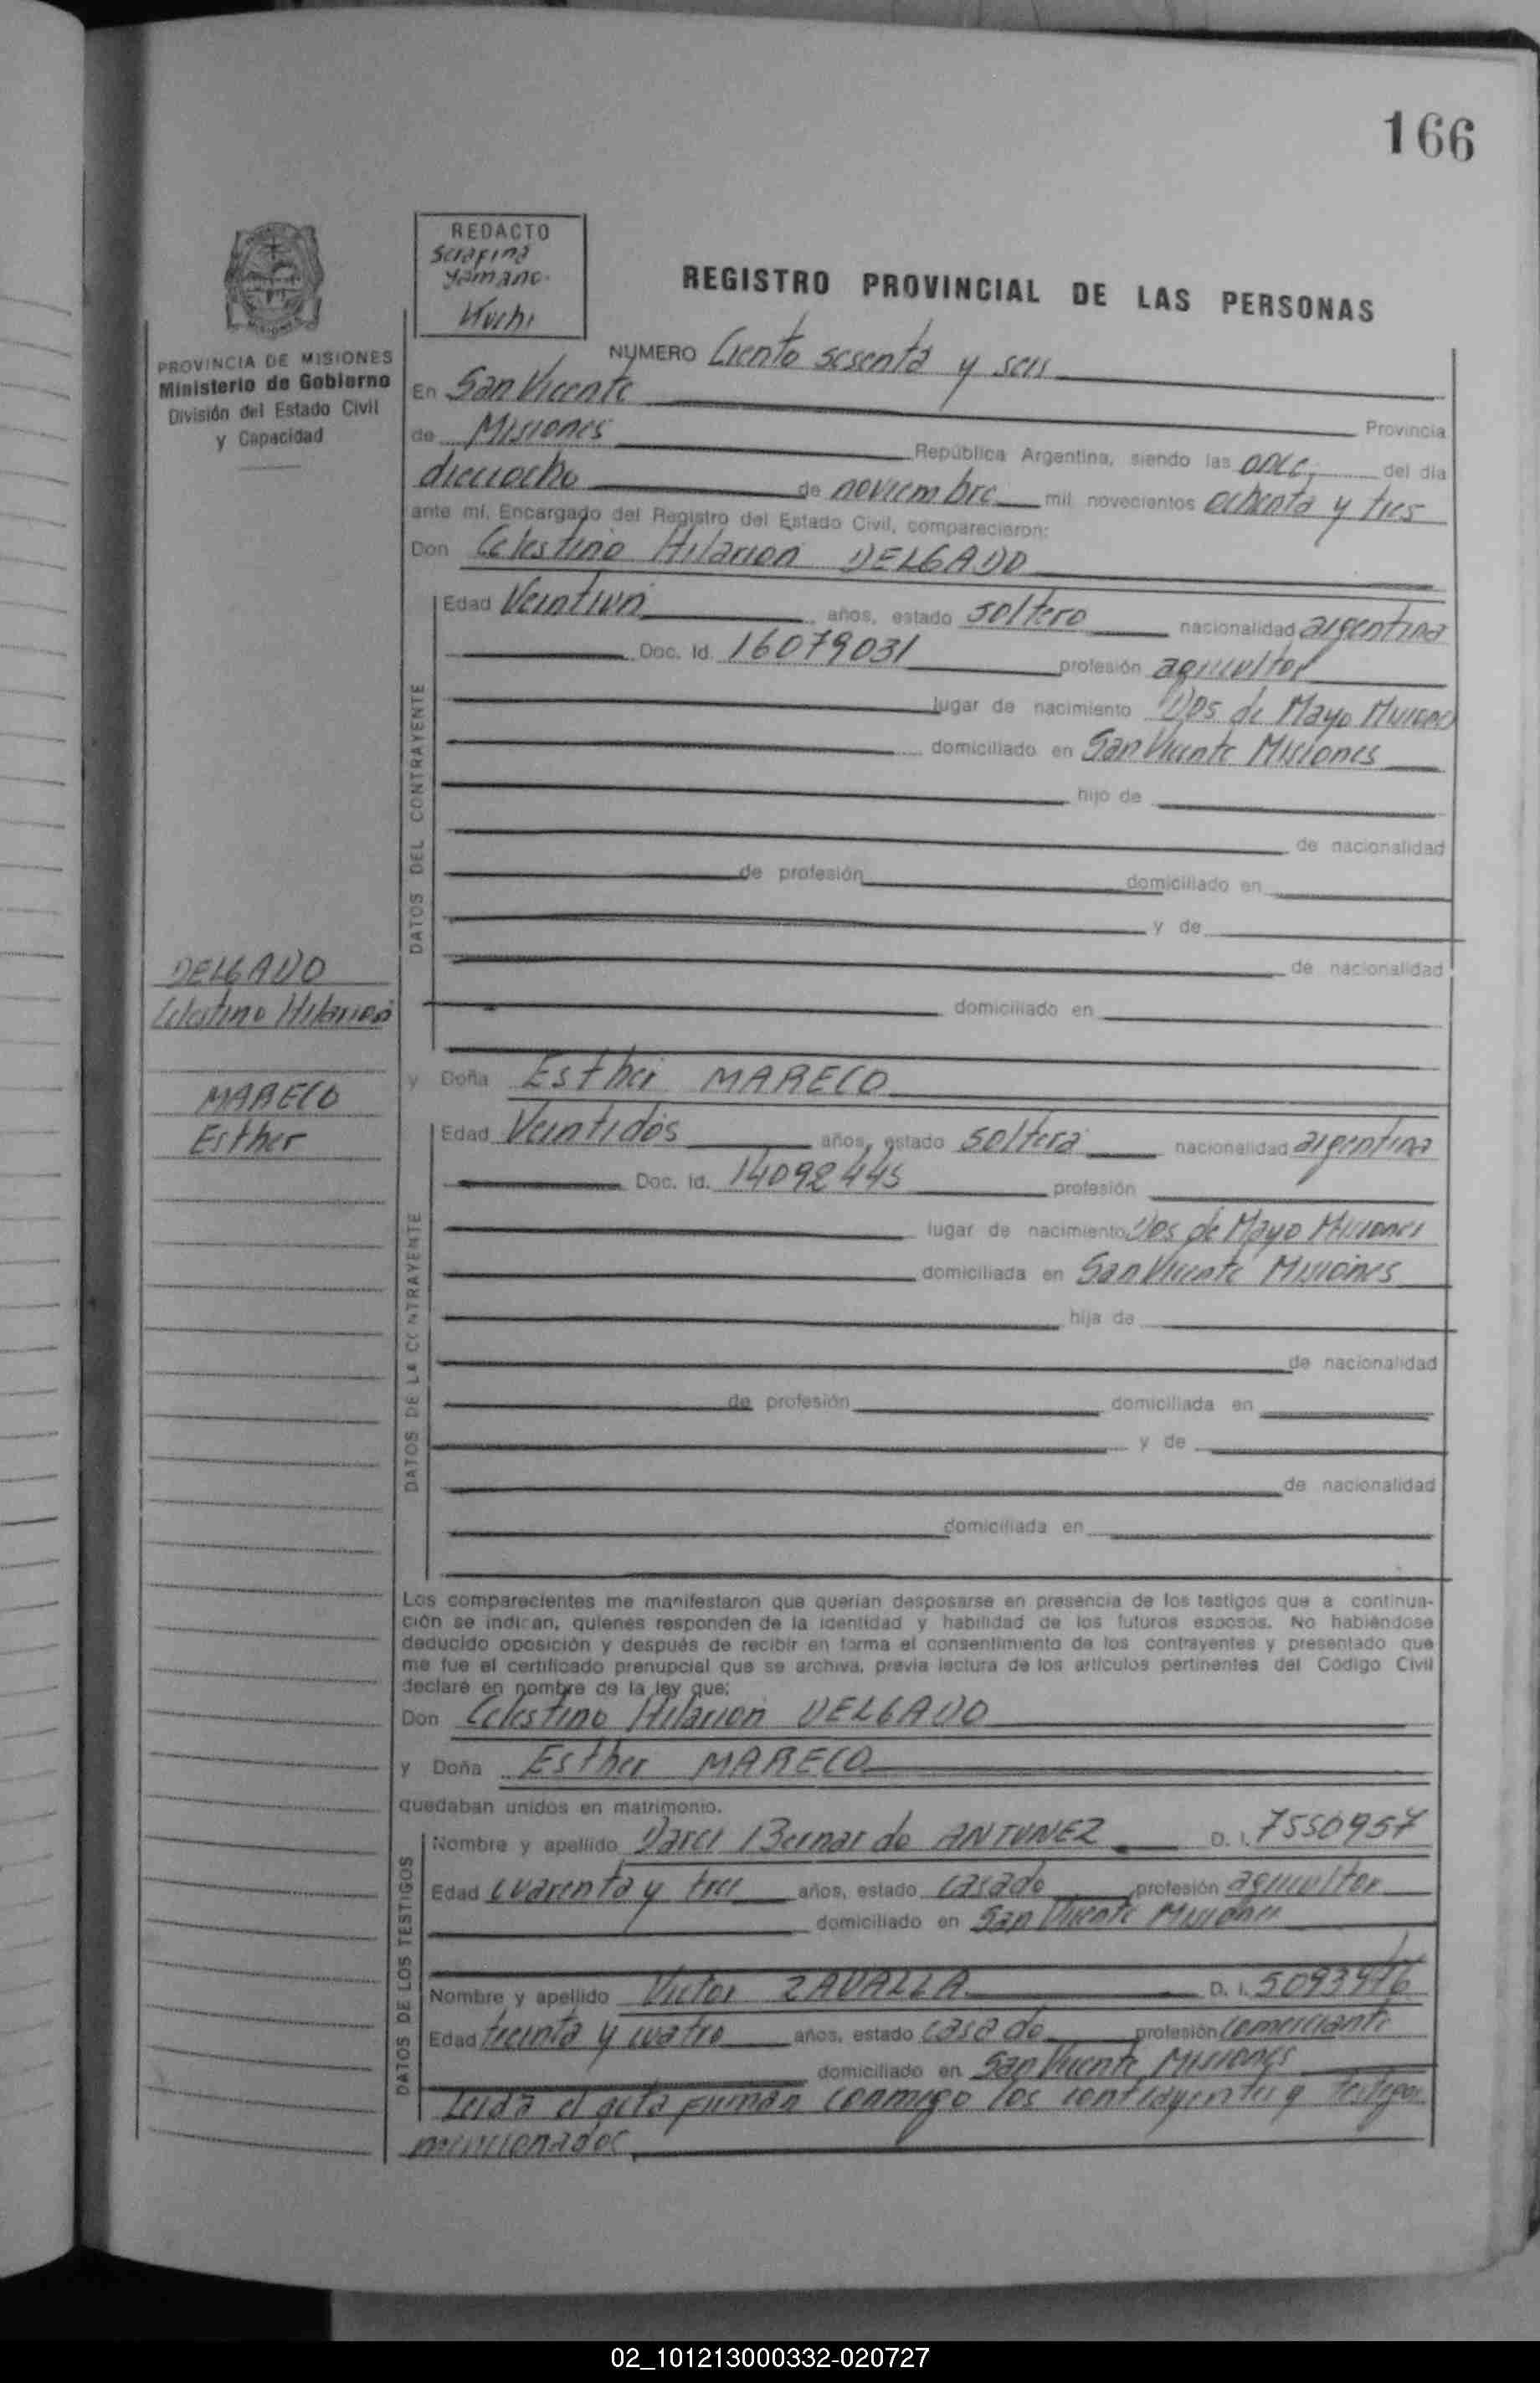 166
REDACTO
Serafina
Yamano
REGISTRO PROVINCIAL DE LAS PERSONAS
PROVINCIA DE MISIONES
Ministerio de Gobierno
División del Estado Civil
y Capacidad
NUMERO Ciento sesenta y seis
En San Vicente
Provincia
de Misiones República Argentina, siendo las once, del día
dieciocho de noviembre mil novecientos ochenta y tres
ante mí, Encargado del Registro del Estado Civil, comparecieron:
Don Celestino Hilarion DELGADO
DATOS DEL CONTRAYENTE
Edad Veintiun años, estado soltero nacionalidad argentina
Doc. Id. 16079031 profesión agricultor
lugar de nacimiento Dos de Mayo Misiones
domiciliado en San Vicente Misiones
hijo de
de nacionalidad
de profesión domiciliado en
y de
de nacionalidad
domiciliado en
DELGADO
Celestino Hilarion
MARECO
Esther
y Doña Esther MARECO
DATOS DE LA CONTRAYENTE
Edad Veintidos años, estado soltera nacionalidad argentina
Doc. Id. 14092445 profesión
lugar de nacimiento Dos de Mayo Misiones
domiciliada en San Vicente Misiones
hija de
de nacionalidad
de profesión domiciliada en
y de
de nacionalidad
domiciliada en
Los comparecientes me manifestaron que querían desposarse en presencia de los testigos que a continua-
ción se indican, quienes responden de la identidad y habilidad de los futuros esposos. No habiéndose
deducido oposición y después de recibir en forma el consentimiento de los contrayentes y presentado que
me fue el certificado prenupcial que se archiva, previa lectura de los artículos pertinentes del Código Civil
declaré en nombre de la ley que:
Don Celestino Hilarion DELGADO
y Doña Esther MARECO
quedaban unidos en matrimonio.
DATOS DE LOS TESTIGOS
Nombre y apellido Darci Bernardo ANTUNEZ D. I. 7550957
Edad cuarenta y tres años, estado casado profesión agricultor
domiciliado en San Vicente Misiones
Nombre y apellido Victor ZAVALLA D. I. 5093976
Edad treinta y cuatro años, estado casado profesión comerciante
domiciliado en San Vicente Misiones
Leida el acta firman conmigo los contrayentes y testigos
mencionados
02_101213000332-020727